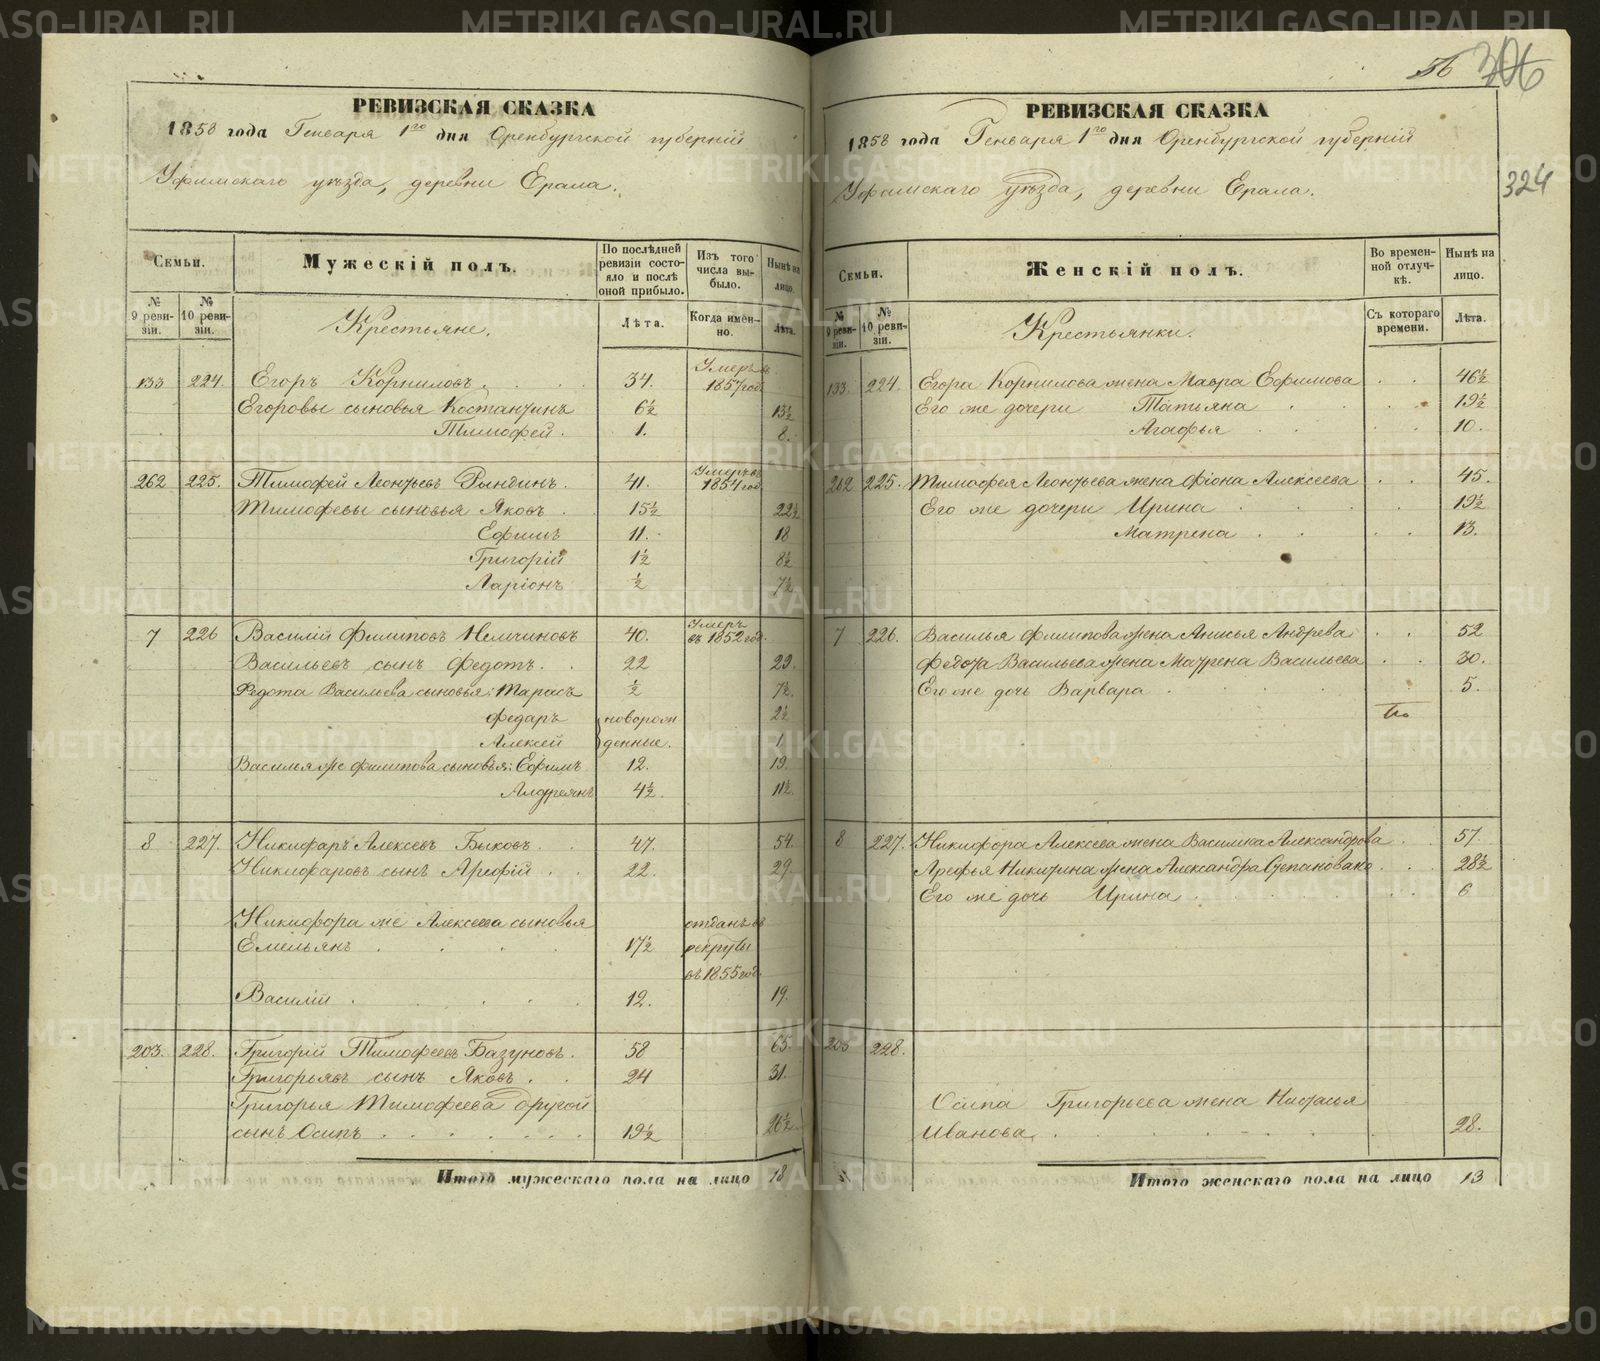 56 306
324
РЕВИЗСКАЯ СКАЗКА
1858 года Генваря 1го дня Оренбургской губернiй
Уфимскаго уѣзда, деревни Ерала.
Семьи.
Мужескiй полъ.
По послѣдней ревизiи состояло и послѣ оной прибыло.
Изъ того числа выбыло.
Нынѣ на лицо.
№ 9 ревизiи.
№ 10 ревизiи.
Крестьяне.
Лѣта.
Когда именно.
Лѣта.
133 224. Егоръ Корниловъ. 34. Умеръ въ 1857 год
Егоровы сыновья Костантинъ 6½ 13½
Тимофей. 1. 8.
262 225. Тимофей Леонтьевъ Рындинъ. 41. Умеръ въ 1854 год
Тимофевы сыновья Яковъ. 15½ 22½
Ефимъ 11. 18
Григорiй 1½ 8½
Ларiонъ ½ 7½
7 226 Василiй Филиповъ Немчиновъ 40. Умеръ въ 1852 год.
Васильевъ сынъ Федотъ. 22 29.
Федота Васильева сыновья: Тарасъ ½ 7½.
Федаръ новорож 2½
Алексей денные. 1
Василья же Филипова сыновья: Ефимъ 12. 19
Андреянъ 4½. 11½
8 227. Никифаръ Алексевъ Быковъ. 47. 54.
Никифаровъ сынъ Арефiй. 22. 29
Никифора же Алексеева сыновья
Емельянъ 17½ отданъ въ рекруты въ 1855 год.
Василiй 12. 19.
203. 228. Григорiй Тимофеевъ Базуновъ. 58 65.
Григорьявъ сынъ Яковъ. 24 31.
Григорья Тимофеева другой
сынъ Осипъ 19½ 26½
Итого мужескаго пола на лицо 18
РЕВИЗСКАЯ СКАЗКА
1858 года Генваря 1го дня Оренбургской губернiй
Уфимскаго уѣзда, деревни Ерала.
Семьи.
Женскiй полъ.
Во временной отлучкѣ.
Нынѣ на лицо.
№ 9 ревизiи.
№ 10 ревизiи.
Крестьянки.
Съ котораго времени.
Лѣта.
133. 224. Егора Корнилова жена Мавра Ефимова 46½
Его же дочери Татьяна 19½
Агафья 10.
262 225. Тимофея Леонтьева жена Фiона Алексеева 45.
Его же дочери Ирина 19½
Матрена 13.
7 226. Василья Филипова жена Анисья Андрева 52
Федота Васильева жена Матрена Васильева 30.
Его же дочь Варвара 5.
8 227. Никифора Алексева жена Василиса Александрова 57.
Арефья Никифорова жена Александра Степановано 28½
Его же дочь Ирина 6
203 228.
Осипа Григорьева жена Настасья
Иванова. 28.
Итого женскаго пола на лицо 13
METRIKI.GASO-URAL.RU